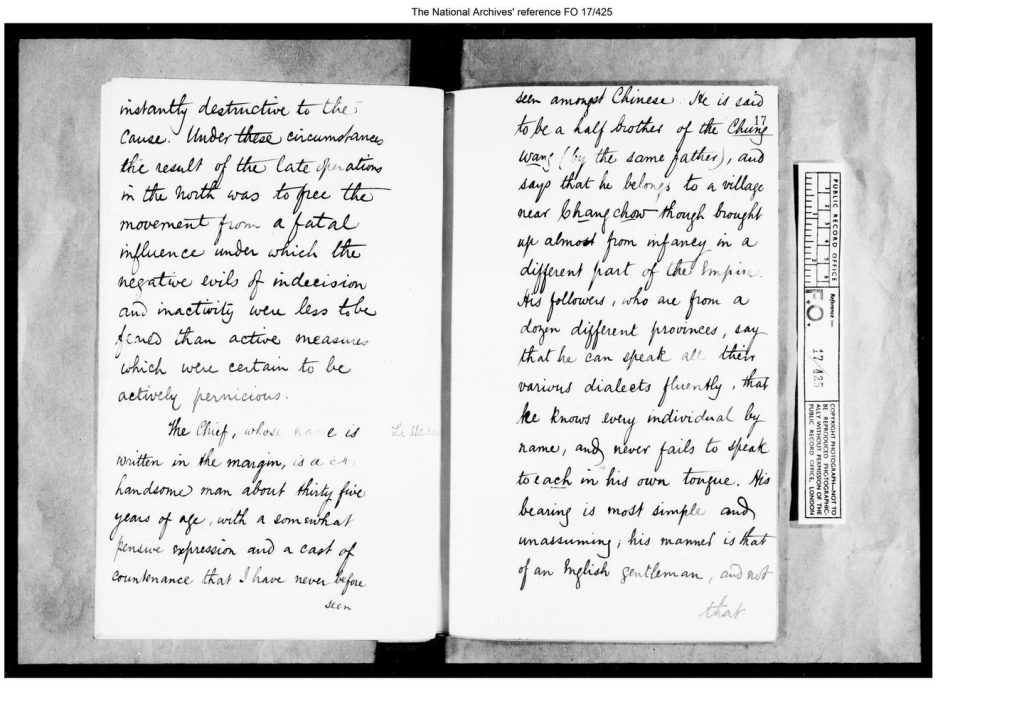 The National Archives' reference FO 17/425
instantly destructive to the
cause. Under these circumstances
the result of the late operations
in the North was to free the
movement from a fatal
influence under which the
negative evils of indecision
and inactivity were less to be
feared than active measures
which were certain to be
actively pernicious.
The Chief, whose name is
written in the margin, is a
handsome man about thirty five
years of age, with a somewhat
pensive expression and a cast of
countenance that I have never before
seen
17
seen amongst Chinese. He is said
to be a half brother of the Chung
wang (by the same father), and
says that he belongs to a village
near Changchow though brought
up almost from infancy in a
different part of the Empire.
His followers, who are from a
dozen different provinces, say
that he can speak all their
various dialects fluently, that
he knows every individual by
name, and never fails to speak
to each in his own tongue. His
bearing is most simple and
unassuming; his manner is that
of an English gentleman, and not
that
PUBLIC RECORD OFFICE
1 2 3 4 5 6
1 2
Reference :-
F.O.
17/425
COPYRIGHT PHOTOGRAPH—NOT TO
BE REPRODUCED PHOTOGRAPHIC-
ALLY WITHOUT PERMISSION OF THE
PUBLIC RECORD OFFICE, LONDON